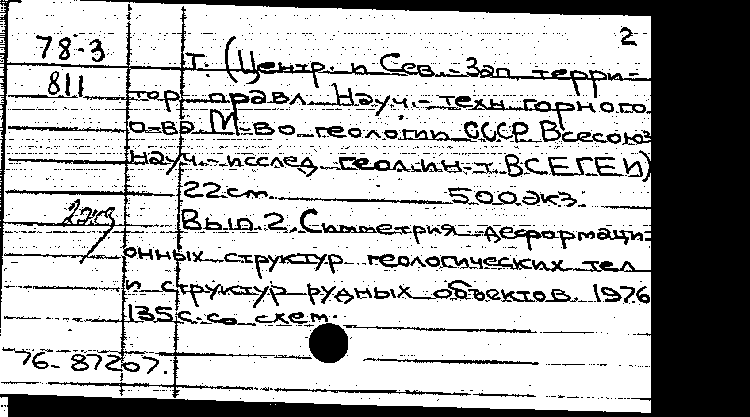 2
78-3
811
Т. (Центр. и Сев.-Зап. терри-
тор. правл. Науч.-техн. горного
о-ва. М-во геологии СССР. Всесоюз.
науч.-исслед. геол. ин-т. ВСЕГЕИ)
22 см. 500 экз.
2 экз
Вып. 2. Симметрия деформаци-
онных структур геологических тел
и структур рудных объектов. 1976
135 с. со схем.
76-87267.